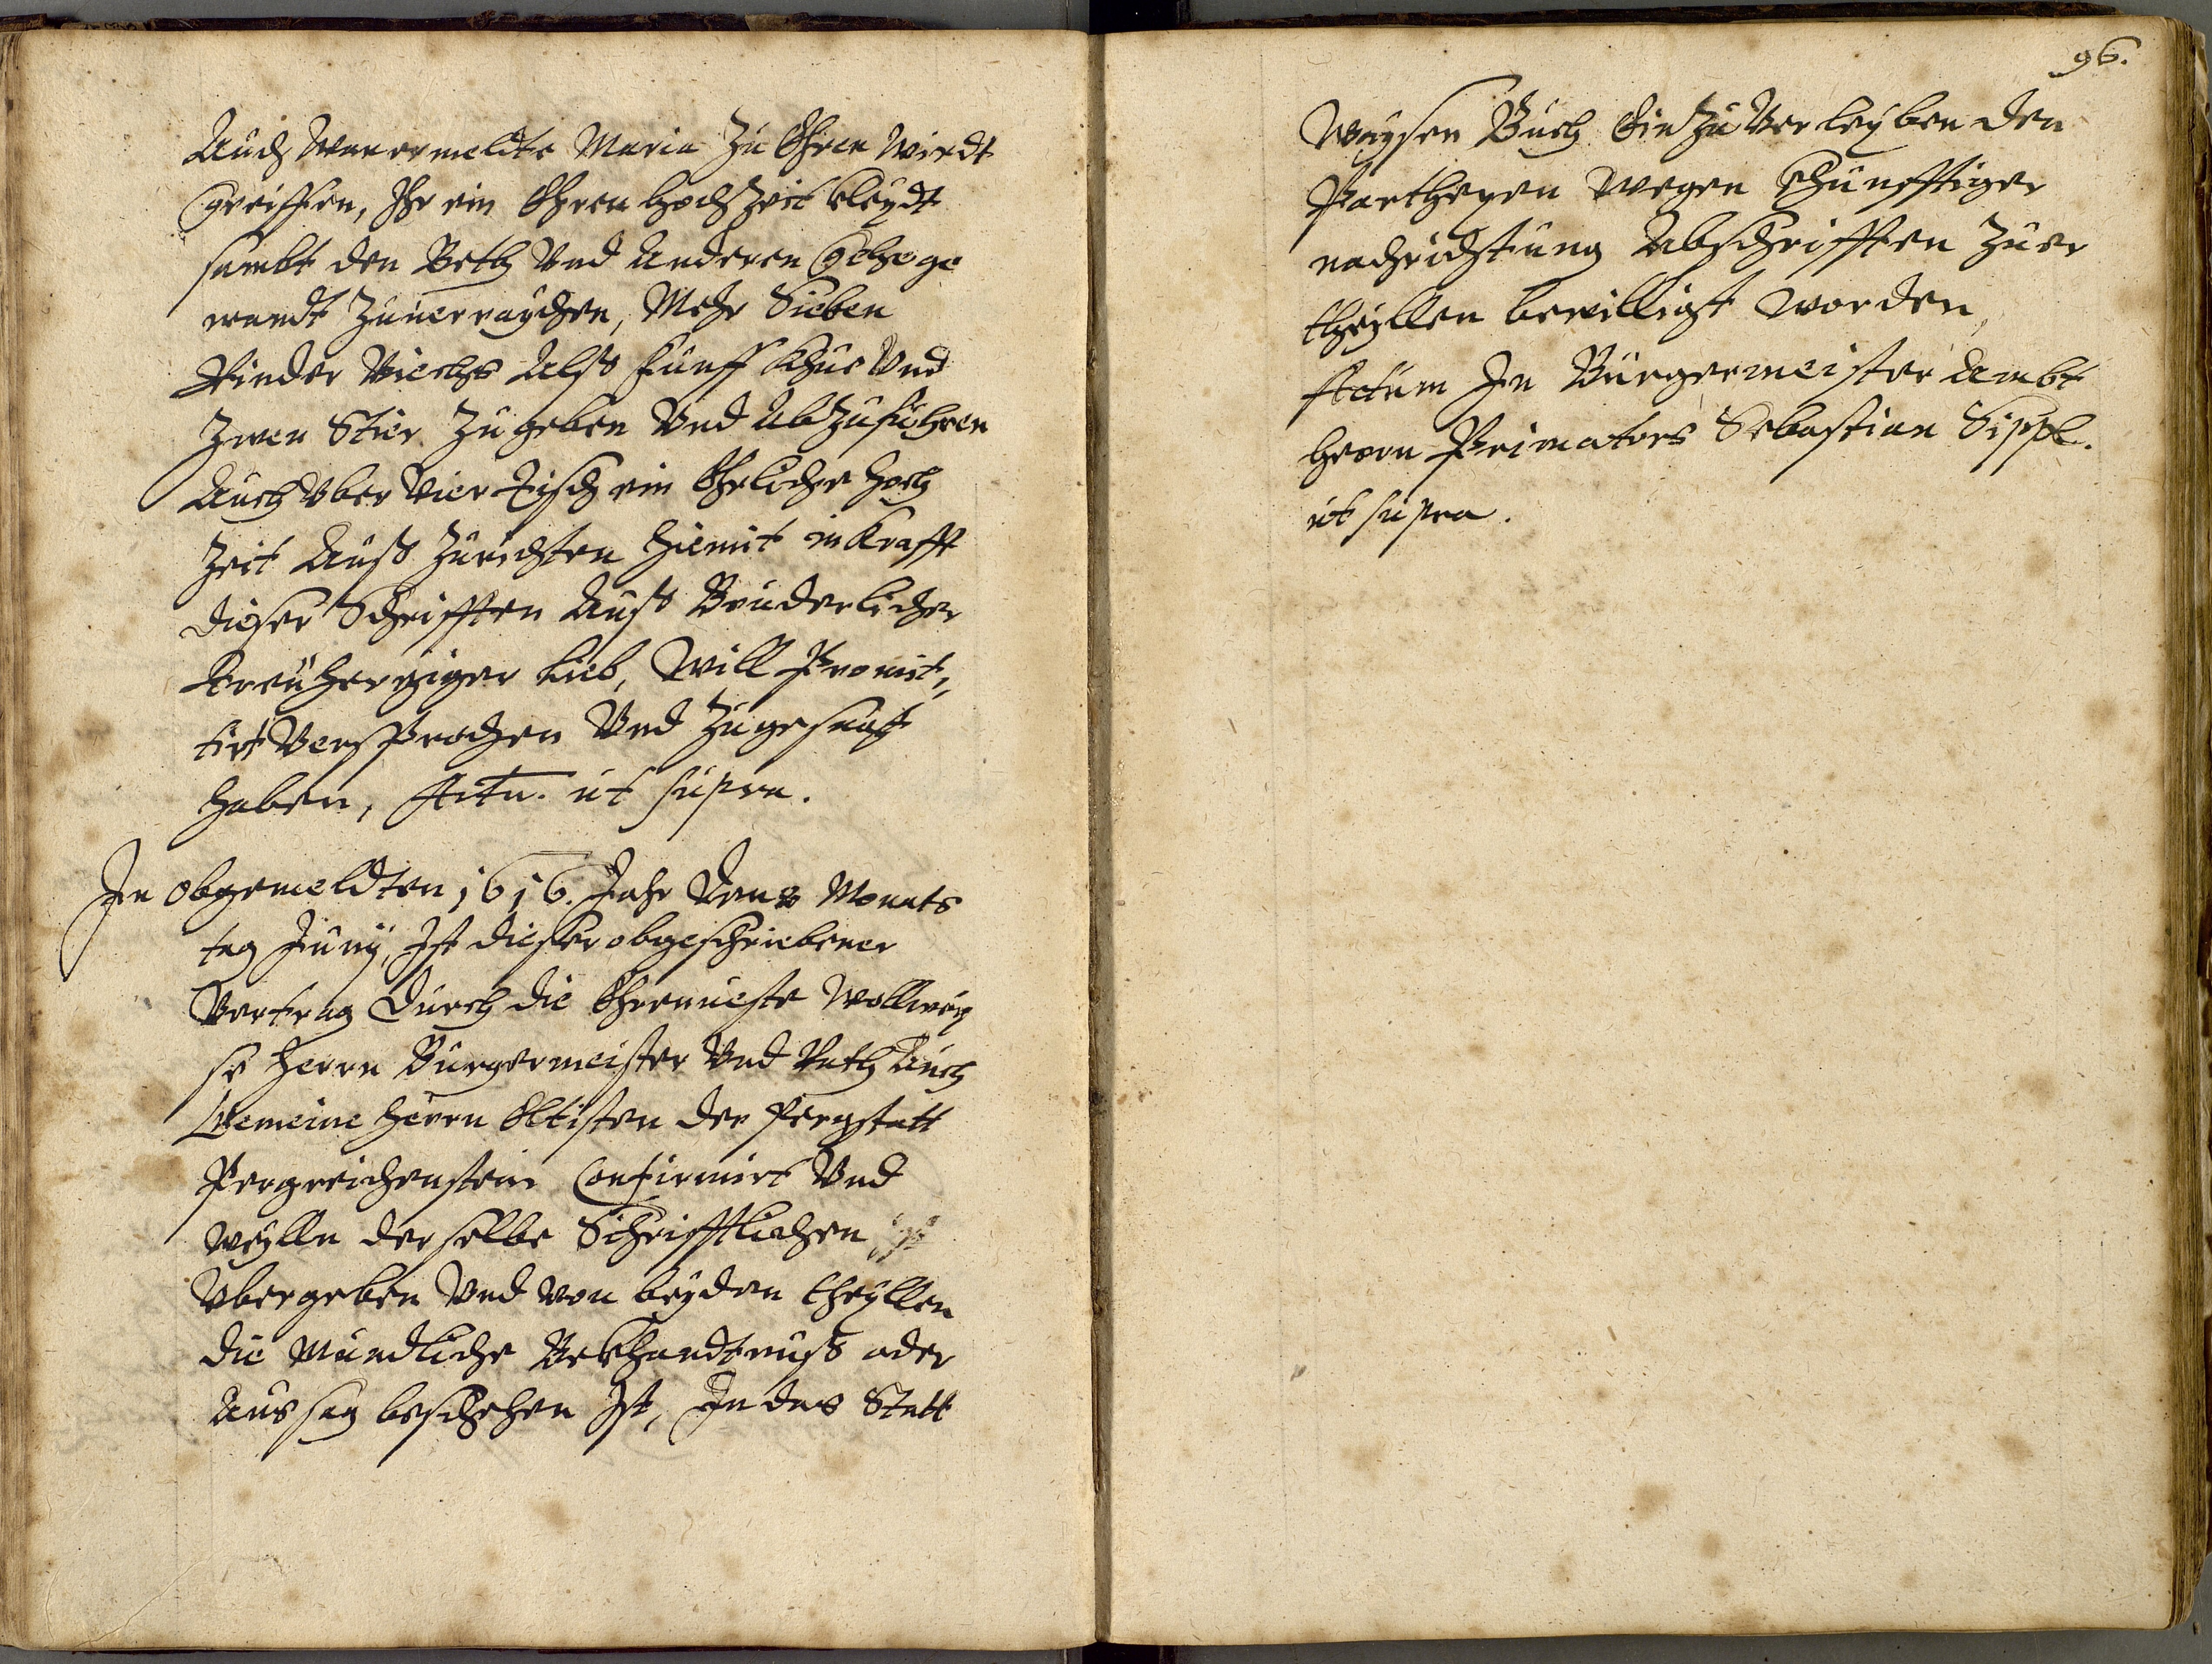 Auch Wan ermeldte Maria Zu Ehren Wirdt
Greiffen, Ihr ein Ehren Hochzeit kleydt
sambt den Beth Vnd Anderen Gehege
wandt Zuuerraychen, Mehr Sieben
Rinder Viechs Alß Fünff Khüe Vnd
Zwen Stier Zu geben Vnd Abzuführen
Auch Vber Vier Tisch ein Ehrliche Hoch
Zeit Auß Zurichten Hiemit in Krafft
dieser Schrifften Auß Bruderlicher
Treuherziger Lieb, Will Promit„
tirt Versprochen Vnd Zugesagt
haben, Actu. ut supra.
In obgemeldten 1616. Jahr Den 8 Monats
tag Juny, Ist dieser obgeschriebener
Vertrag Durch die Ehrnueste Wollwey
se Herrn Burgermeister Vnd Rath Auch
Gemeine Herrn Eltisten der Pergstatt
Pergreichenstein Confirmirt Vnd
Weylln derselbe Schrifftlichen
Vbergeben Vnd von beyden theyllen
die Mundliche Bekhandtnuß oder
Aussag beschehen Ist, In das Statt
96.
Waysen Buch Ein Zu Verleyben den
Partheyen Wegen Khünfftiger
nachrichtung Abschrifften Zuer
theyllen bewilligt worden,
Actum In Burgermeister Ambt
Herrn Primators Sebastian Sippl.
ut supra.